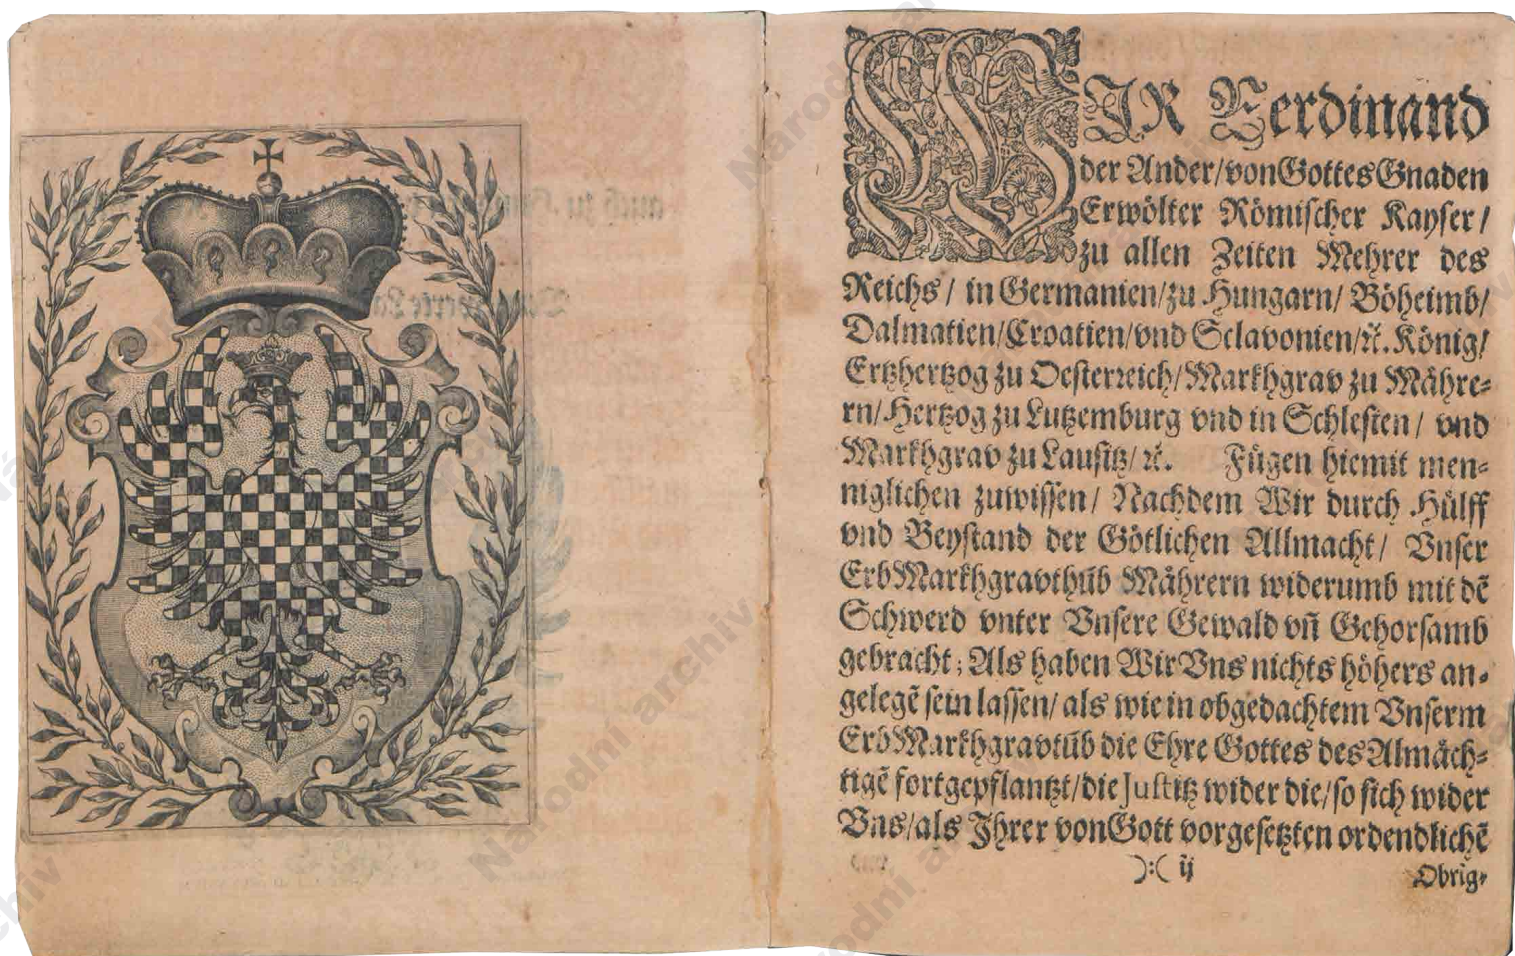 WIR Ferdinand
der Ander/von Gottes Gnaden
Erwölter Römischer Kayser/
zu allen Zeiten Mehrer des
Reichs/ in Germanien/zu Hungarn/ Böheimb/
Dalmatien/Croatien/vnd Sclavonien/ꝛc. König/
Ertzhertzog zu Oesterreich/Markhgrav zu Mähre-
rn/Hertzog zu Lutzemburg vnd in Schlesien/ vnd
Markhgrav zu Lausitz/ ꝛc. Fügen hiemit men-
niglichen zuwissen/ Nachdem Wir durch Hülff
vnd Beystand der Götlichen Allmacht/ Vnser
ErbMarkhgravthũb Mährern widerumb mit dẽ
Schwerd vnter Vnsere Gewald vñ Gehorsamb
gebracht; Als haben Wir Vns nichts höhers an-
gelegẽ sein lassen/ als wie in obgedachtem Vnserm
ErbMarkhgravtũb die Ehre Gottes des Almäch-
tigẽ fortgepflantzt/die Justitz wider die/so sich wider
Vns/als Ihrer von Gott vorgesetzten ordendlichẽ
):( ij Obrig-
Národní archiv
Národní archiv